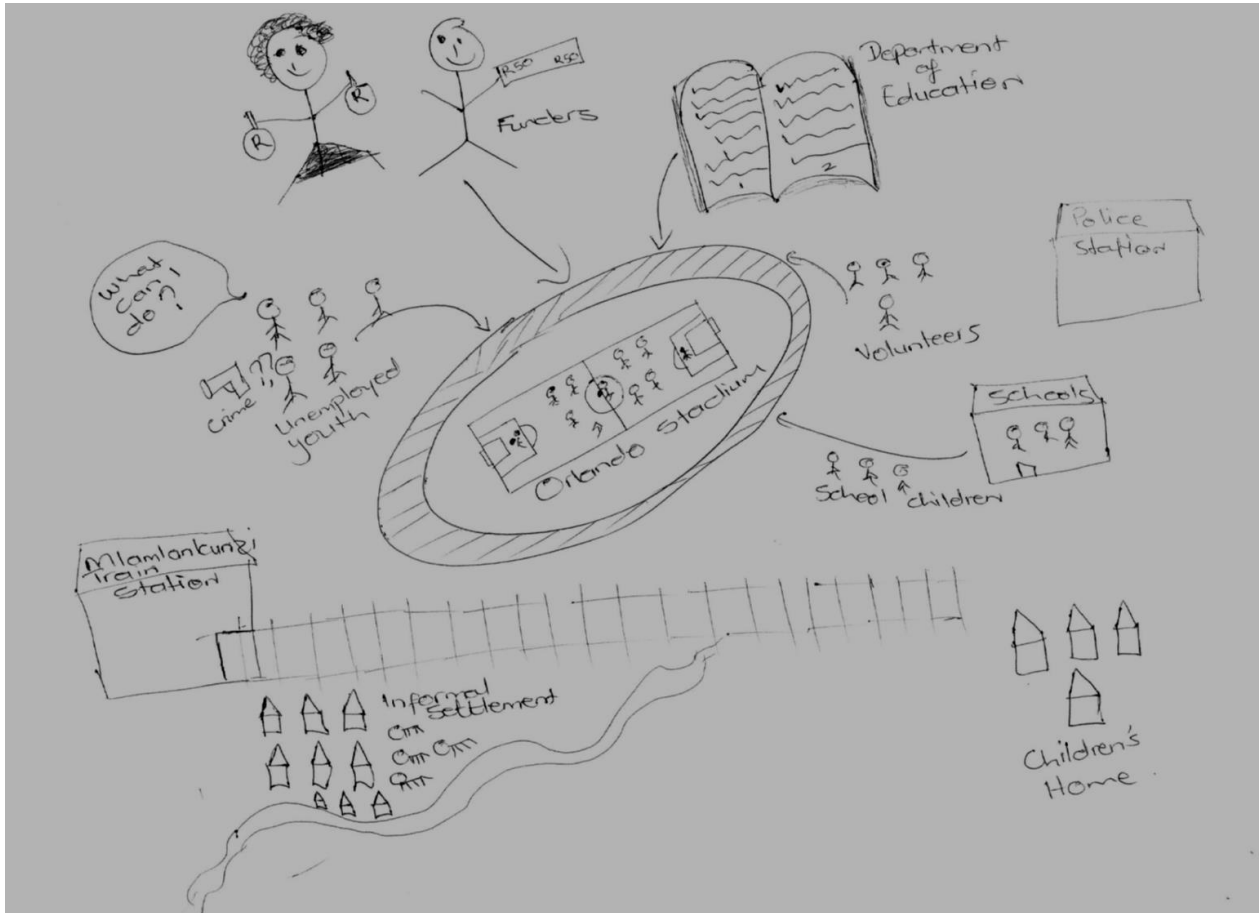 R
R
R50 R50
Funders
Department
of
Education
1
2
Police
Station
What
can I
do?
??
Crime
Unemployed
youth
Volunteers
Schools
School children
Orlando Stadium
Mlamlankunzi
Train
Station
Informal
Settlement
Children's
Home